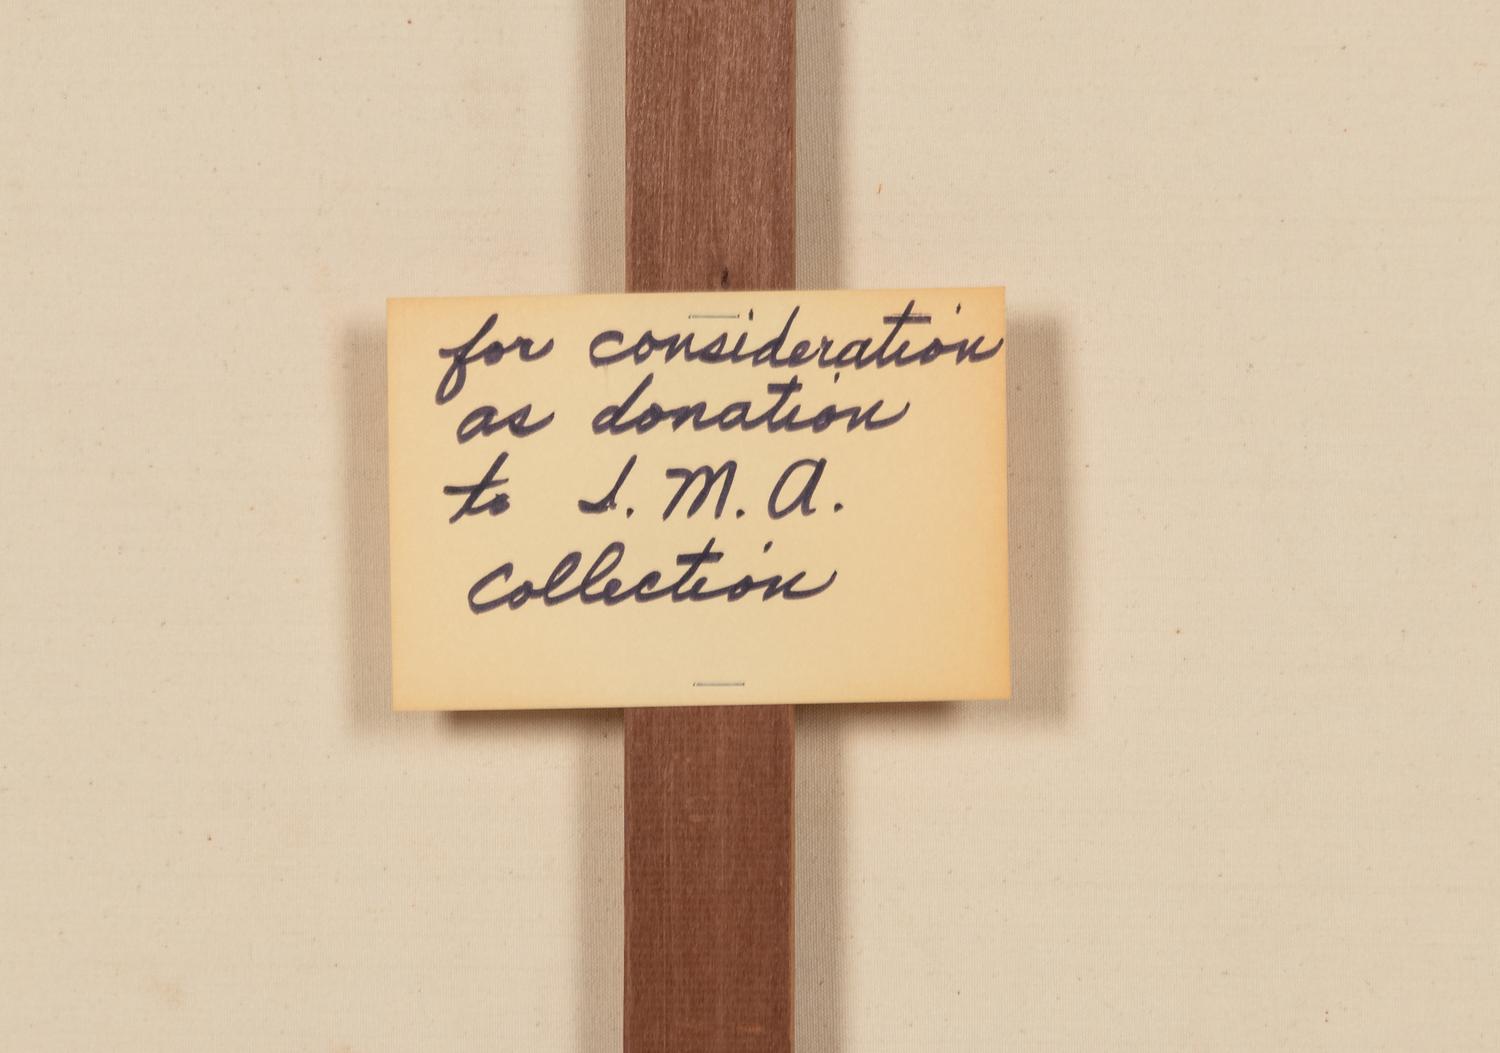 for consideration
as donation
to I. M. A.
collection